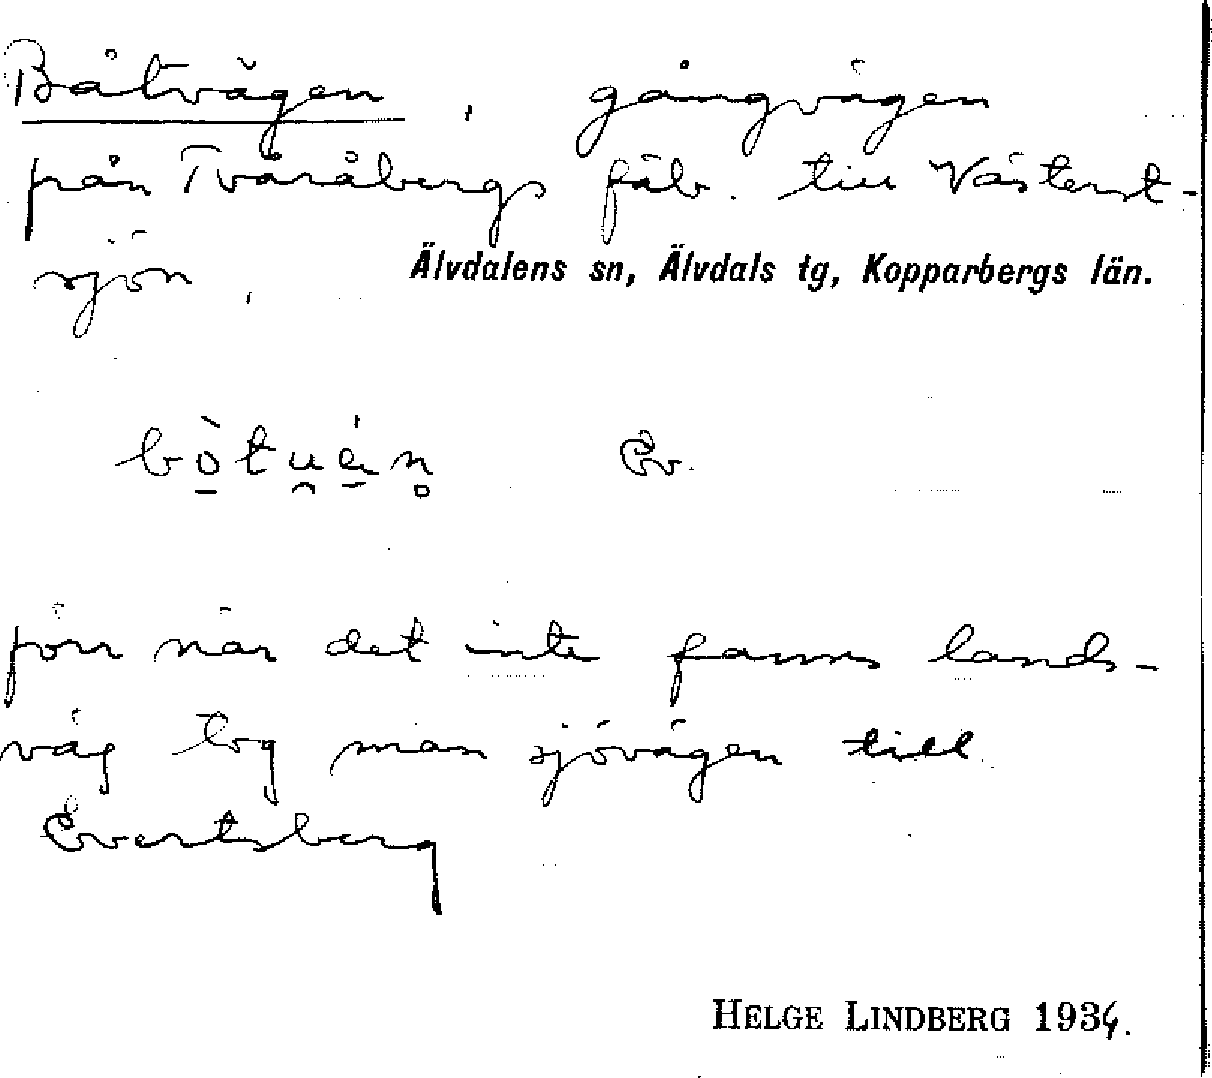 Båtvägen, gångvägen
från Tvåråbergs fäb. till Västerut-
sjön,
Älvdalens sn, Älvdals tg, Kopparbergs län.
bò̱tu̯é̱n̥ Ev.
förr när det inte fanns lands-
väg tog man sjövägen till
Evertsberg
HELGE LINDBERG 1934.